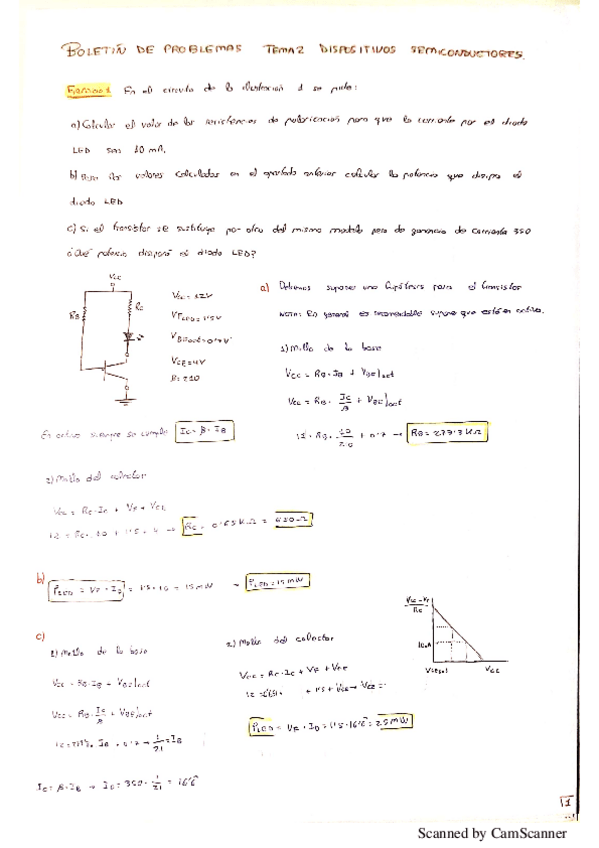 BOLETÍN DE PROBLEMAS TEMA 2 DISPOSITIVOS SEMICONDUCTORES.
En el circuito de la ilustración 1 se pide:
a) Calcular el valor de las resistencias de polarización para que la corriente por el diodo
LED sea 10 mA.
b) Para los valores calculados en el apartado anterior calcular la potencia que disipa el
diodo LED
c) Si el transistor se sustituye por otro del mismo modelo pero de ganancia de corriente 350
¿Qué potencia disipará el diodo LED?
Vcc
RB
Rc
Vcc = 12V
VFLED = 1'5V
VCE = 4V
a) Debemos suponer una hipótesis para el transistor
NOTA: En general es recomendable suponer que está en activa.
1) Malla de la base
Vcc = RB · IB + VBE|act
Vcc = RB · Ic/β + VBE|act
12 = RB · + 0'7 → RB = 237'3 KΩ
En activa siempre se cumple Ic = β · IB
2) Malla del colector
Vcc = Rc · Ic + VF + VCE
12 = Rc · 10 + 1'5 + 4 → Rc = 0'65 KΩ = 650 Ω
b)
PLED = VF · ID = 1'5 · 10 = 15 mW → PLED = 15 mW
Vcc - VF
Rc
10mA
Vcc
c)
1) Malla de la base
Vcc = RB · IB + VBE|act
Vcc = RB · Ic/β + VBE|act
Ic = β · IB → ID = 350 · 1/21 = 16'6
2) Malla del colector
Vcc = Rc · Ic + VF + VCE
PLED = VF · ID = 1'5 · 16'6 = 25 mW
1
Scanned by CamScanner